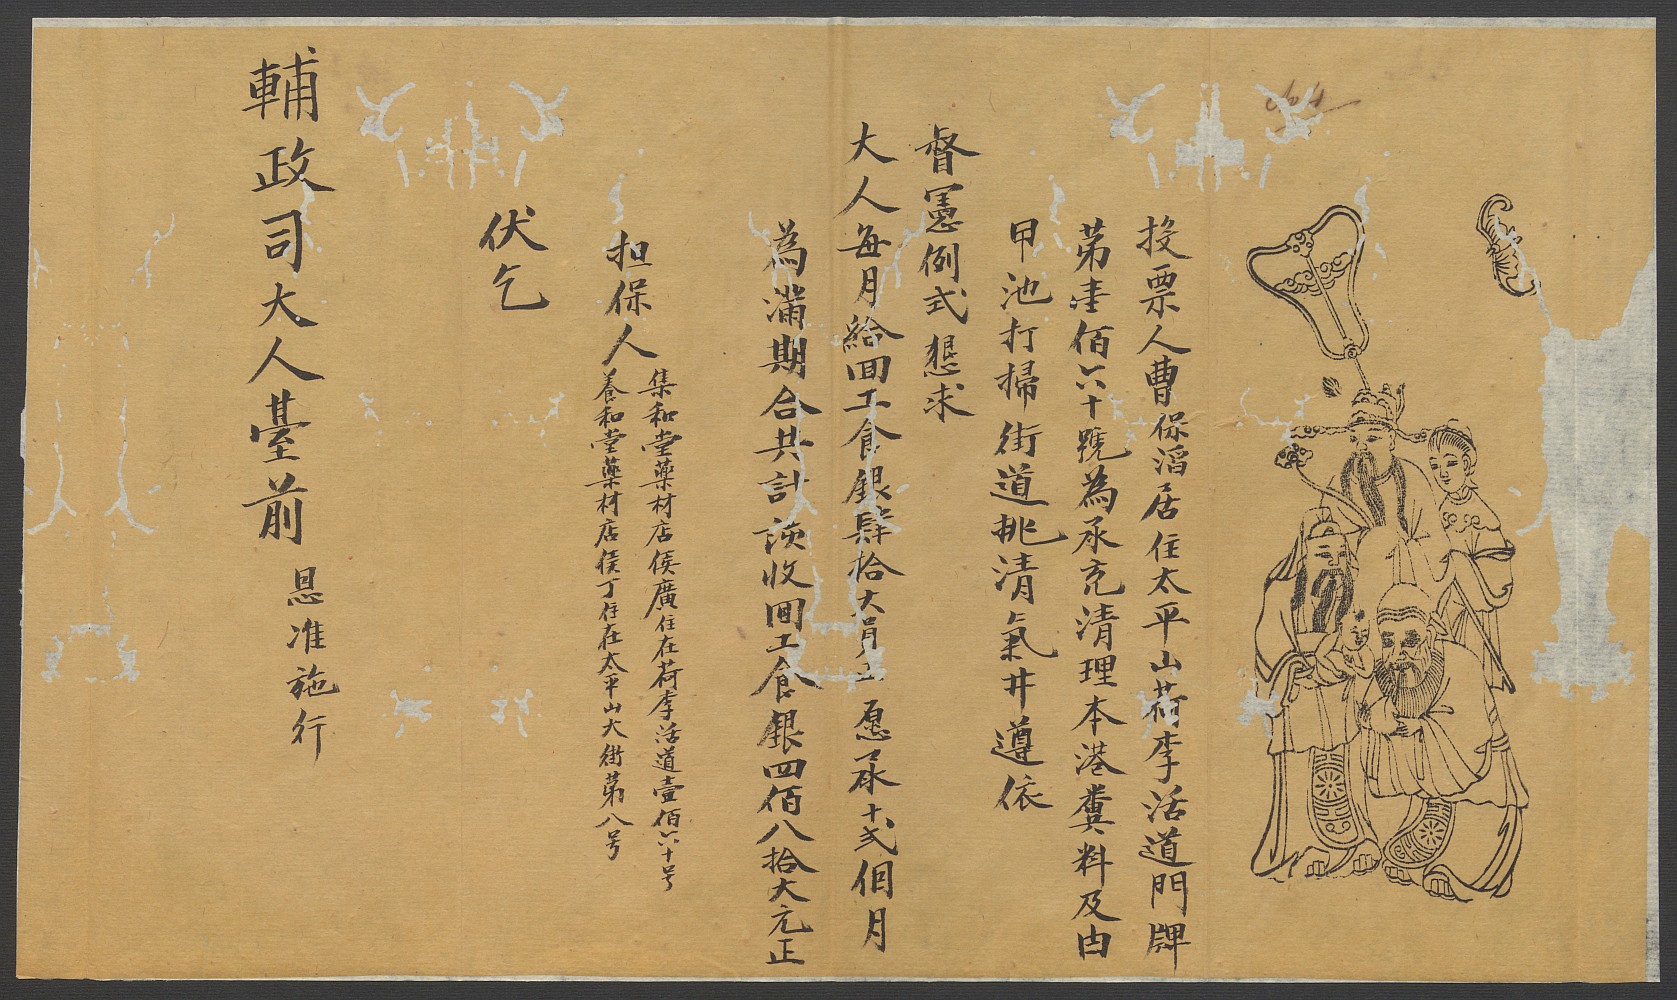 投票人曹保滔居住太平山荷李活道門牌
苐壹佰六十號為承充清理本港糞料及由
甲池打掃街道挑清氣井遵依
督憲例式懇求
大人每月給囬工食銀肆拾大員正愿承十弍個月
為滿期合共計該收囬工食銀四佰八拾大元正
担保人
集和堂藥材店侯廣住在荷李活道壹佰六十号
養和堂藥材店侯丁住在太平山大街苐八号
伏乞
輔政司大人臺前
恩准施行